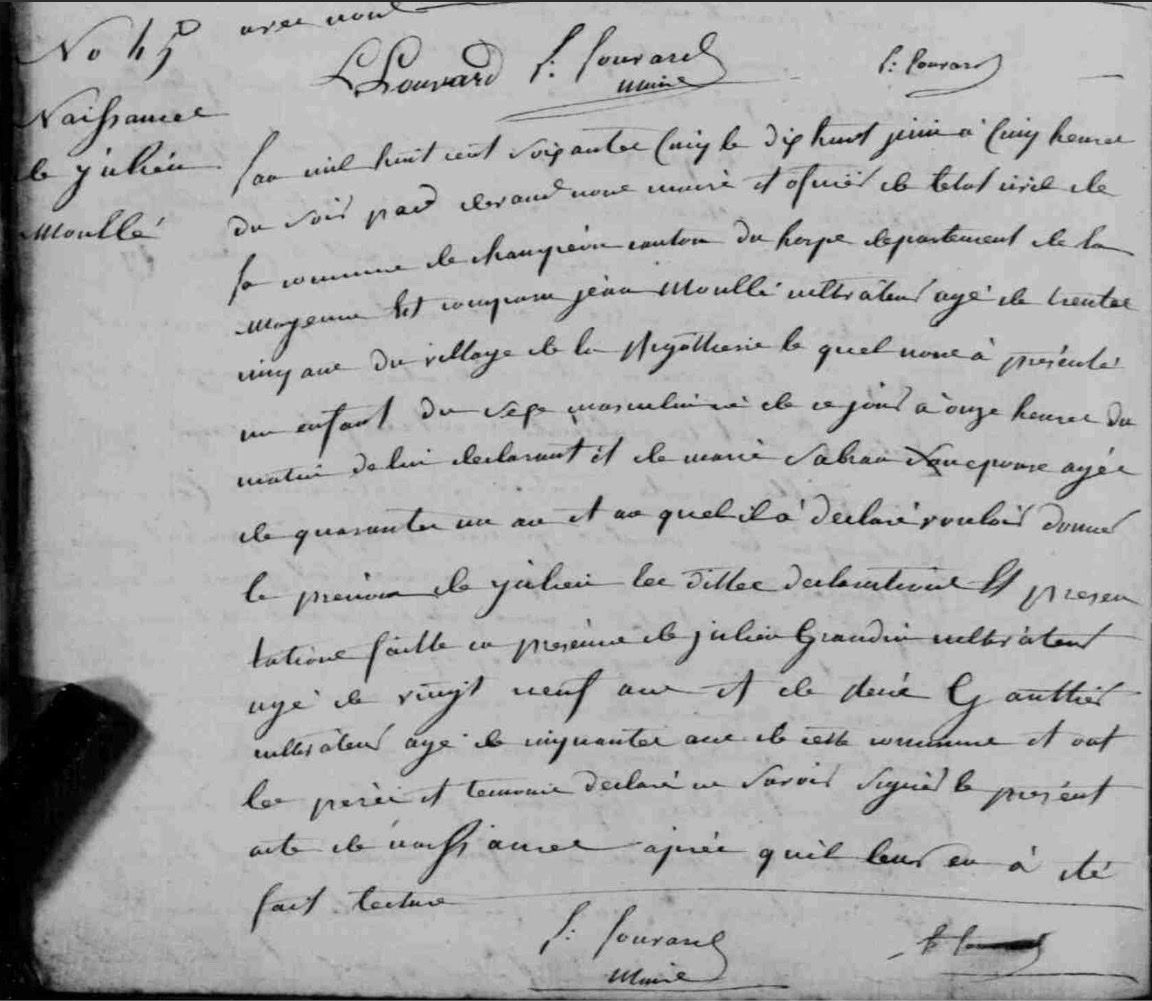 avec nous
No 45
L Louvard f: Louvard f: Louvard
Maire
Naissance
de julien
Moullé
Lan mil huit cent soixantee Cinq le dix huit juin à Cinq heures
du soir par devand nous maire et oficier de letat civil de
la commune de champéon canton du horps departement de la
Mayenne Est comparu jean Moullé cultivateur agé de trentee
cinq ans du village de la le quel nous à présenté
un enfant du sexe masculin né de ce jour à onze heures du
matin de lui declarant et de marie Sabran Son epouse agée
de quarantee un an et au quel il à déclaré vouloir donner
le prenom de julien les dittes declarations Et presen
tations faitte en présence de julien Grandin cultivateur
agé de vingt neuf ans et de Gauttier
cultivateur agé de cinquantee ans de cette commune et ont
les peres et temoins declaré ne savoir signer le présent
acte de naissance après quil leur en à été
fait lecture
f: Louvard
Maire